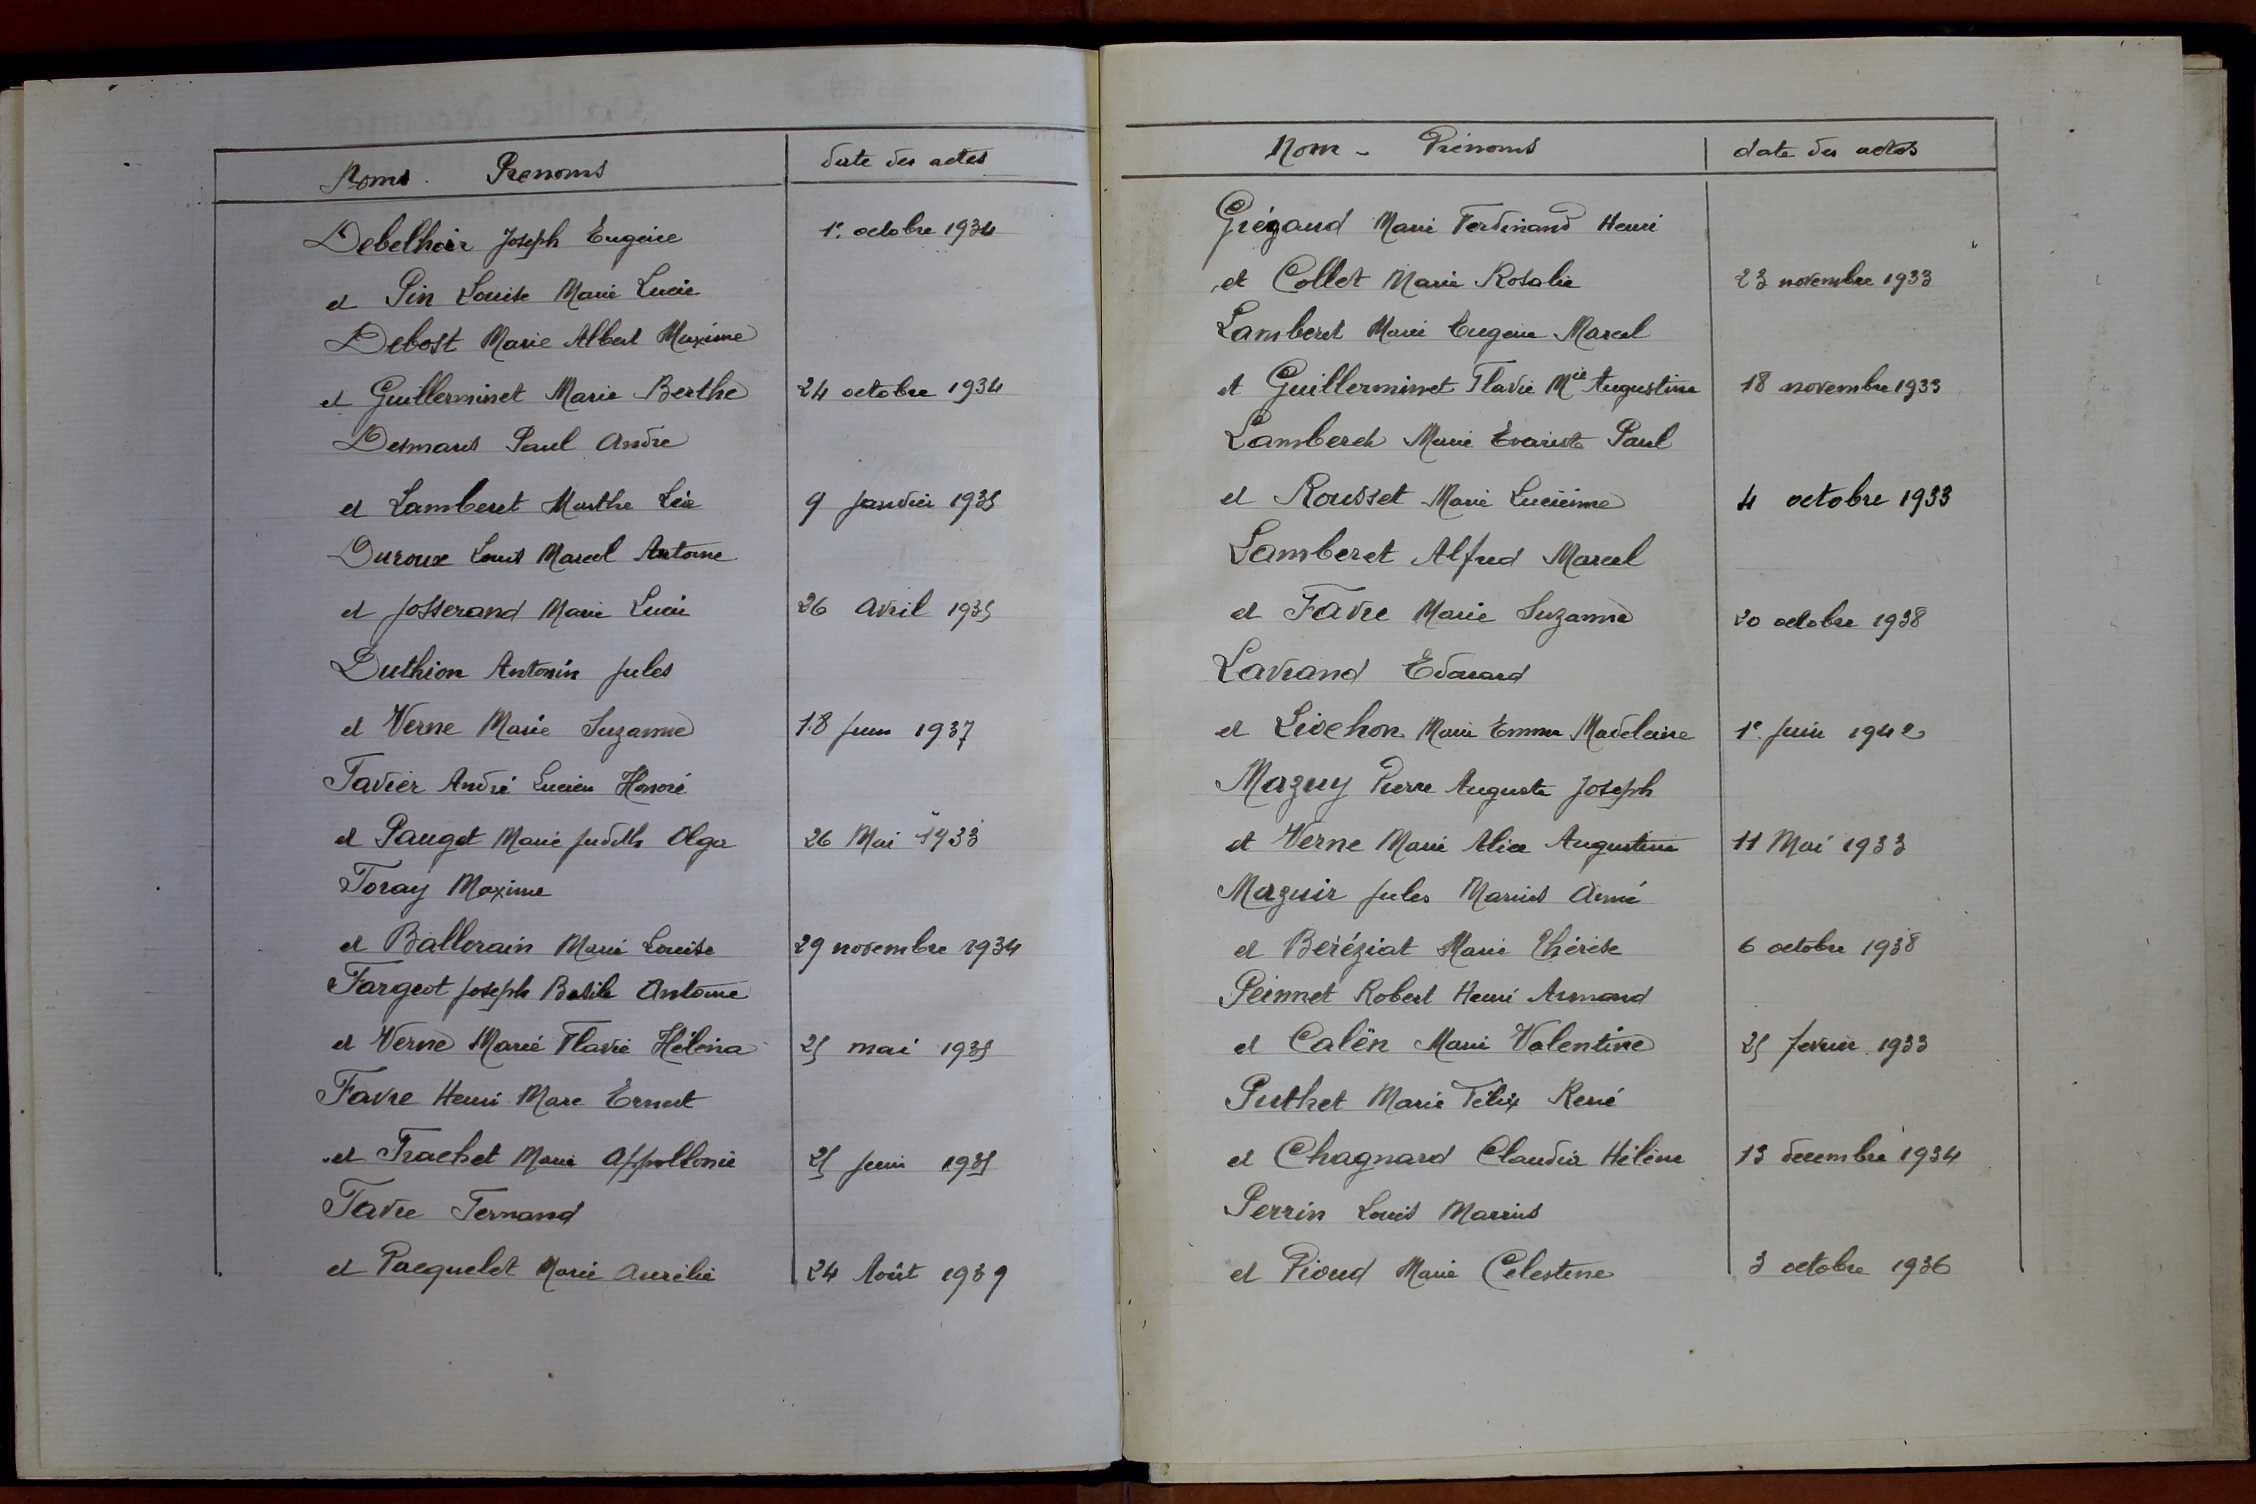 Noms - Prenoms date des actes
Debelhoir Joseph Eugene 1er octobre 1934
et Pin Louise Marie Lucie
Debost Marie Albert Maxime
et Guillerminet Marie Berthe 24 octobre 1934
Desmaris Paul André
et Lamberet Marthe Léa 9 Janvier 1935
Duroux Louis Marcel Antoine
et Josserand Marie Lucie 26 Avril 1935
Duthion Antonin Jules
et Verne Marie Suzanne 18 Juin 1937
Favier André Lucien Honoré
et Pauget Marie Judith Olga 26 Mai 1933
Foray Maxime
et Ballorain Marie Louise 29 novembre 1934
Fargeot Joseph Basile Antoine
et Verne Marie Flavie Héléna 25 mai 1935
Favre Henri Marc Ernest
et Trachet Marie Appollonie 25 Juin 1935
Favre Fernand
et Pacquelet Marie Aurélie 24 Août 1939
Nom - Prénoms date des actes
Grégaud Marie Ferdinand Henri
et Collet Marie Rosalie 23 novembre 1933
Lamberet Marie Eugène Marcel
et Guillerminet Flavie Mie Augustine 18 novembre 1933
Lamberet Marie Evariste Paul
et Rousset Marie Lucienne 4 octobre 1933
Lamberet Alfred Marcel
et Favre Marie Suzanne 20 octobre 1938
Lavrand Edouard
et Livehon Marie Emma Madeleine 1er Juin 1942
Mazuy Pierre Auguste Joseph
et Verne Marie Alice Augustine 11 Mai 1933
Mazuir Jules Marius Aimé
et Beréziat Marie Thérèse 6 octobre 1938
Peinnet Robert Henri Armand
et Calën Marie Valentine 25 fevrier 1933
Puthet Marie Félix René
et Chagnard Claudia Hélène 13 decembre 1934
Perrin Louis Marius
et Pioud Marie Celestine 3 octobre 1936